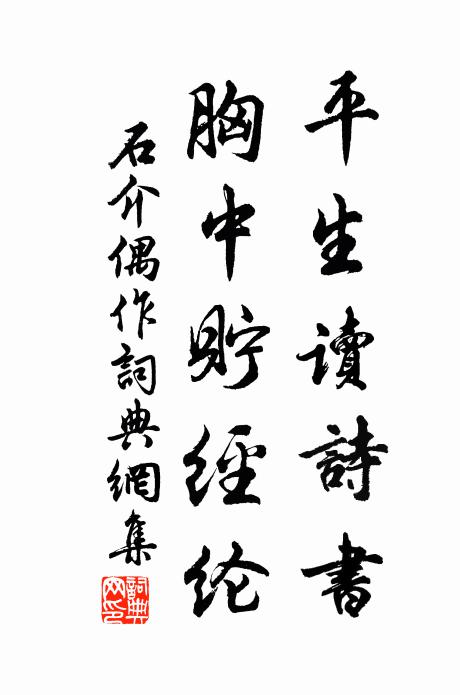 平生讀詩書
胸中貯經纶
石介偶作詞典網集
詞典網印